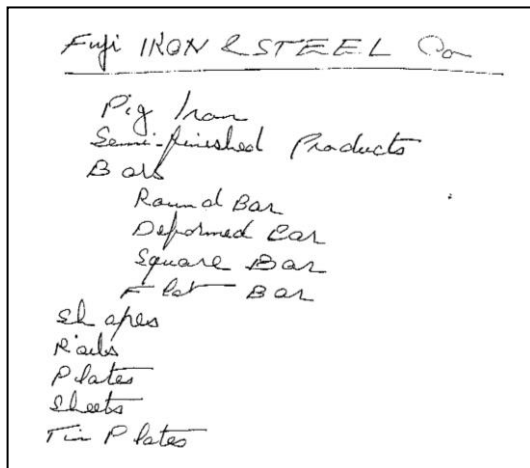 Fuji IRON & STEEL Co
Pig Iron
Semi-finished Products
Bars
Round Bar
Deformed Bar
Square Bar
Flat Bar
Shapes
Rails
Plates
Sheets
Tin Plates